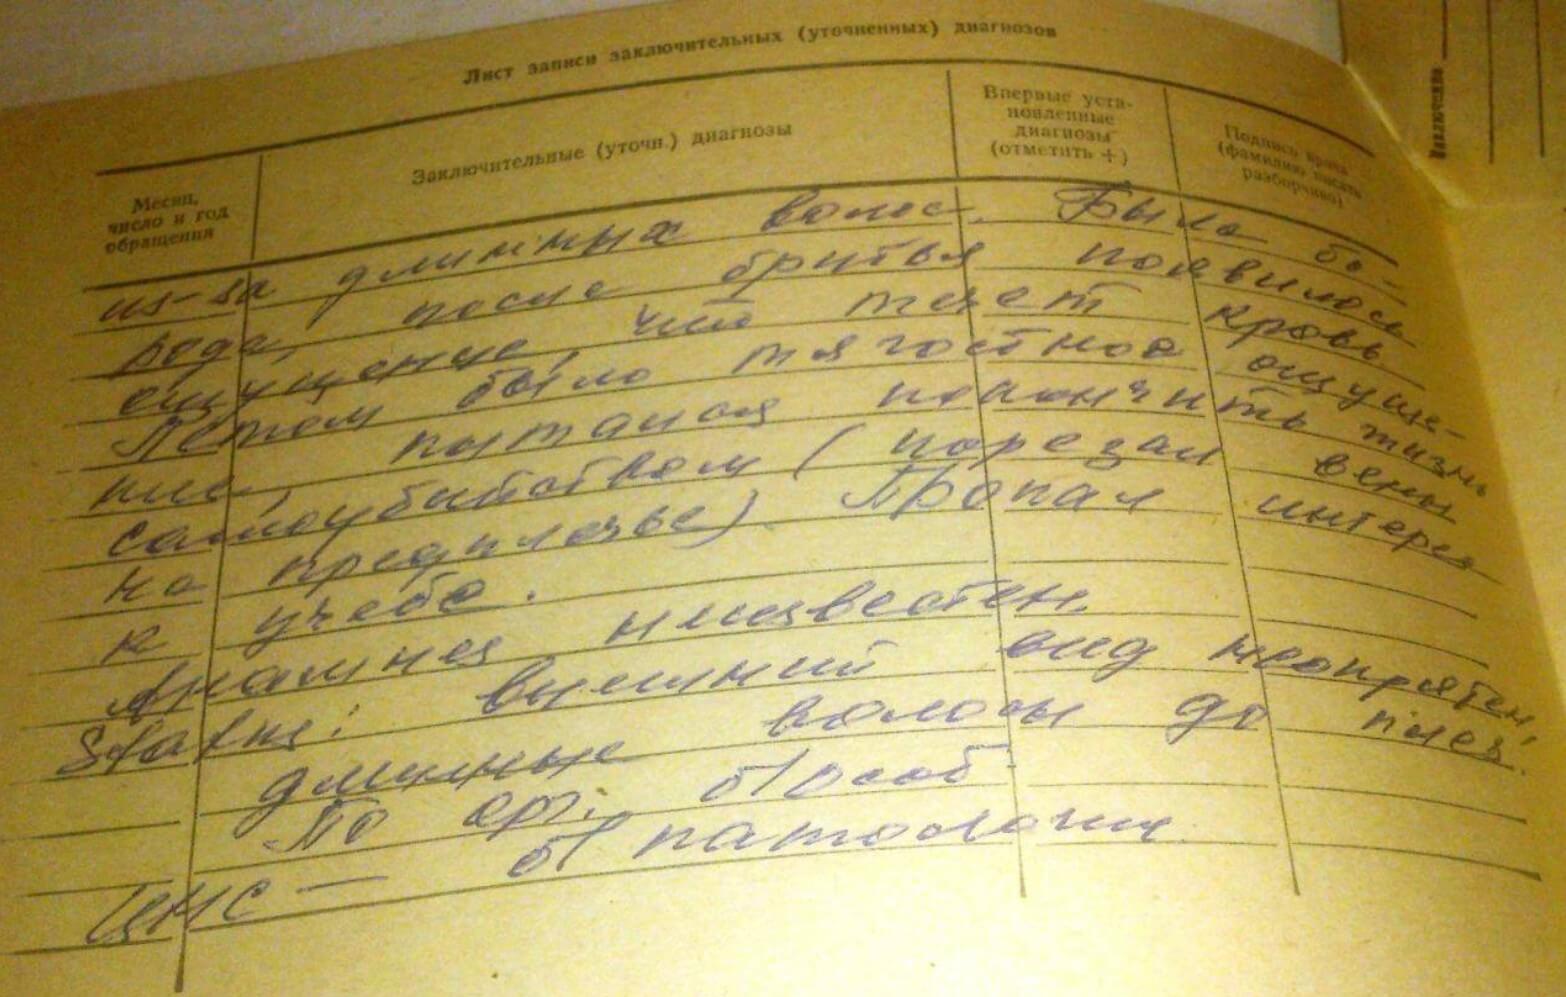 Лист записи заключительных (уточненных) диагнозов
Месяц,
число и год
обращения
Заключительные (уточн.) диагнозы
Впервые уста-
новленные
диагнозы
(отметить +)
Подпись врача
(фамилию писать
разборчиво)
из-за длинных волос. Была бо-
рода, после бритья появилось
ощущение, что течет кровь
Летом было тягостное ощуще-
ние, пытался покончить жизнь
самоубийством (порезал вены
на предплечье). Пропал интерес
к учебе.
Анамнез неизвестен.
Status: внешний вид неопрятен,
длинные волосы до плеч.
По орг. б/особ.
ЦНС — б/патологии